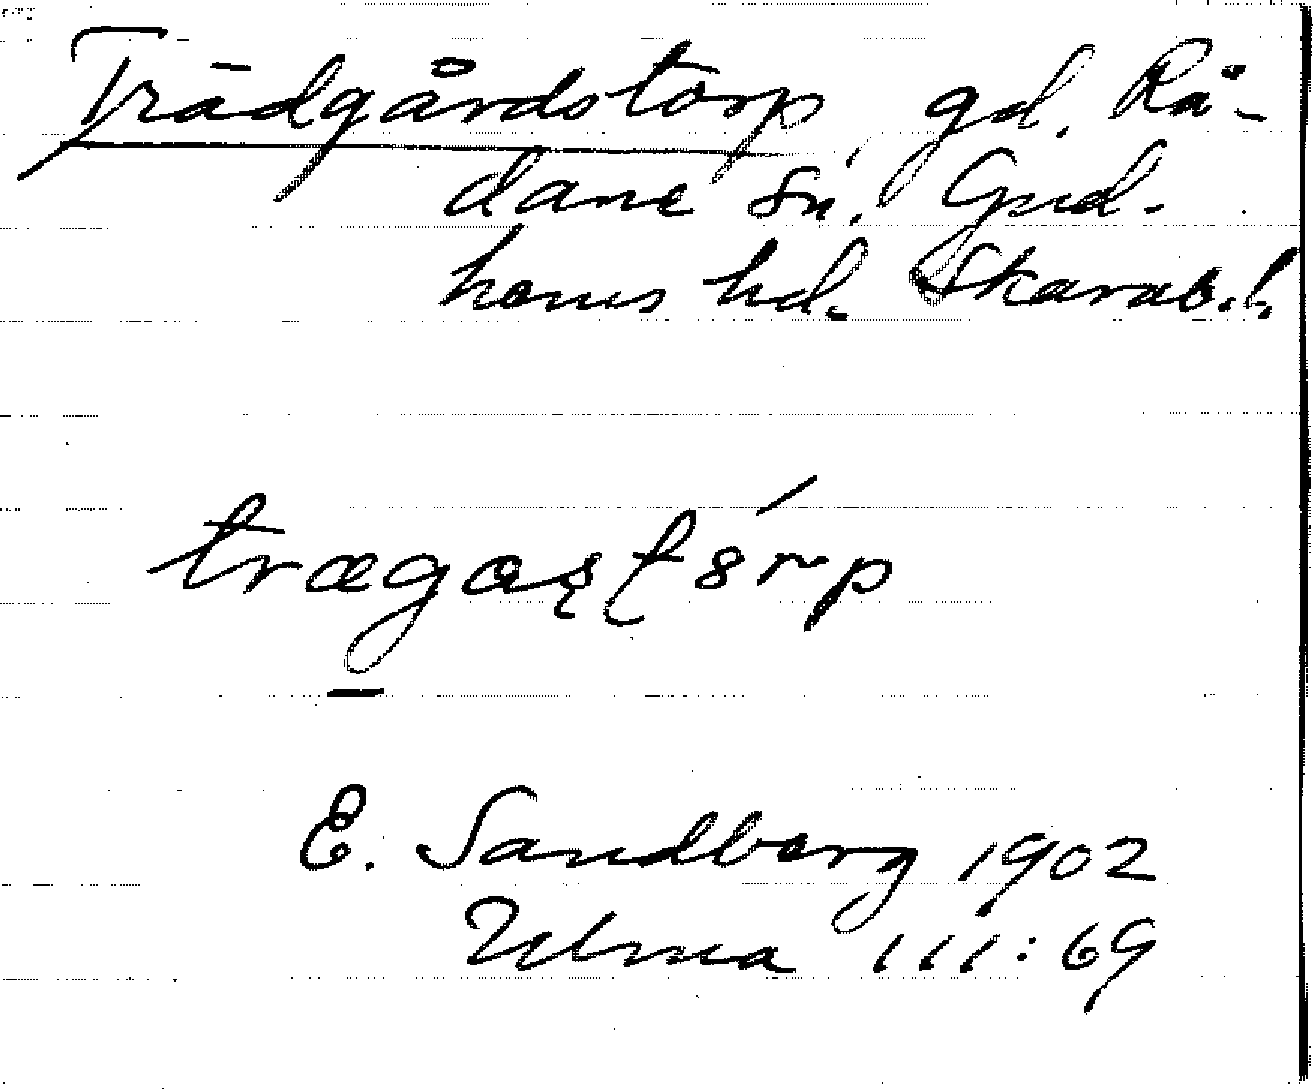 Trädgårdstorp gd. Rå-
dane sn. Gud-
hems hd. Skarab.l.
trægaʂʈórp
E. Sandberg 1902
Ulma 111:69